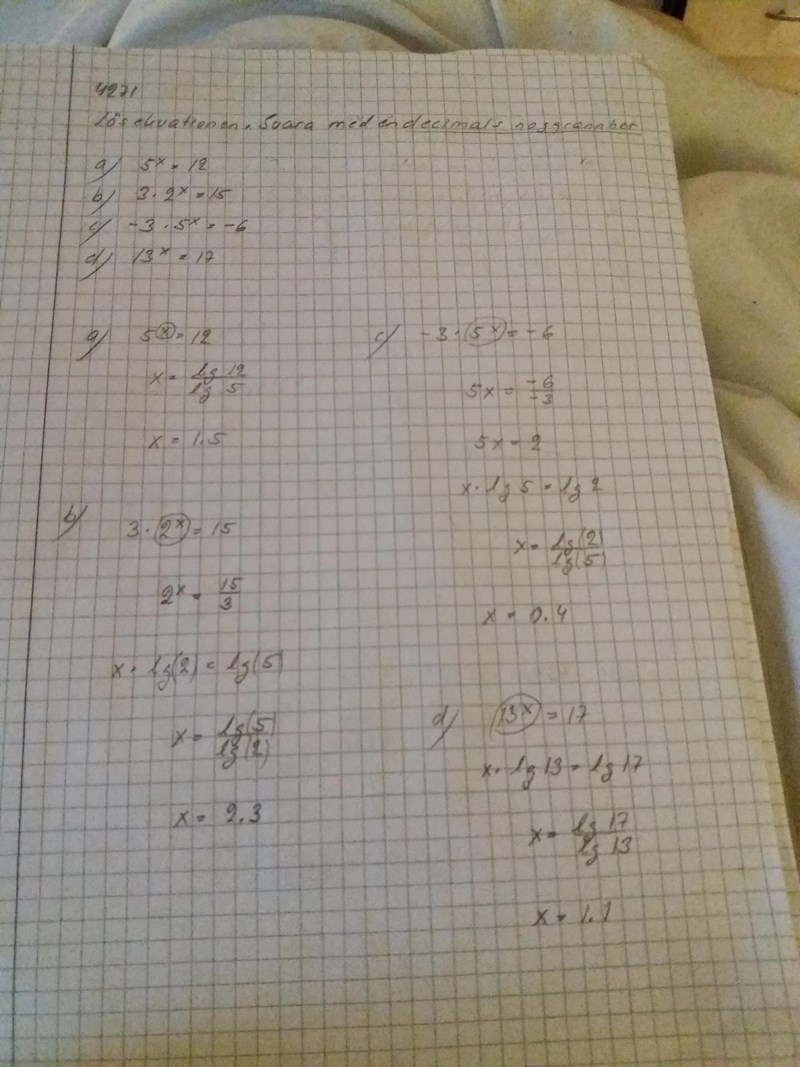 4271
Lös ekvationen. Svara med en decimals noggrannhet
a) 5^x = 12
b) 3 · 2^x = 15
c) -3 · 5^x = -6
d) 13^x = 17
a) 5^x = 12
x = lg 12 / lg 5
x = 1.5
b) 3 · 2^x = 15
2^x = 15/3
x · lg(2) = lg(5)
x = lg(5) / lg(2)
x = 2.3
c) -3 · 5^x = -6
5x = -6/-3
5x = 2
x · lg 5 = lg 2
x = lg(2) / lg(5)
x = 0.4
d) 13^x = 17
x · lg 13 = lg 17
x = lg 17 / lg 13
x = 1.1